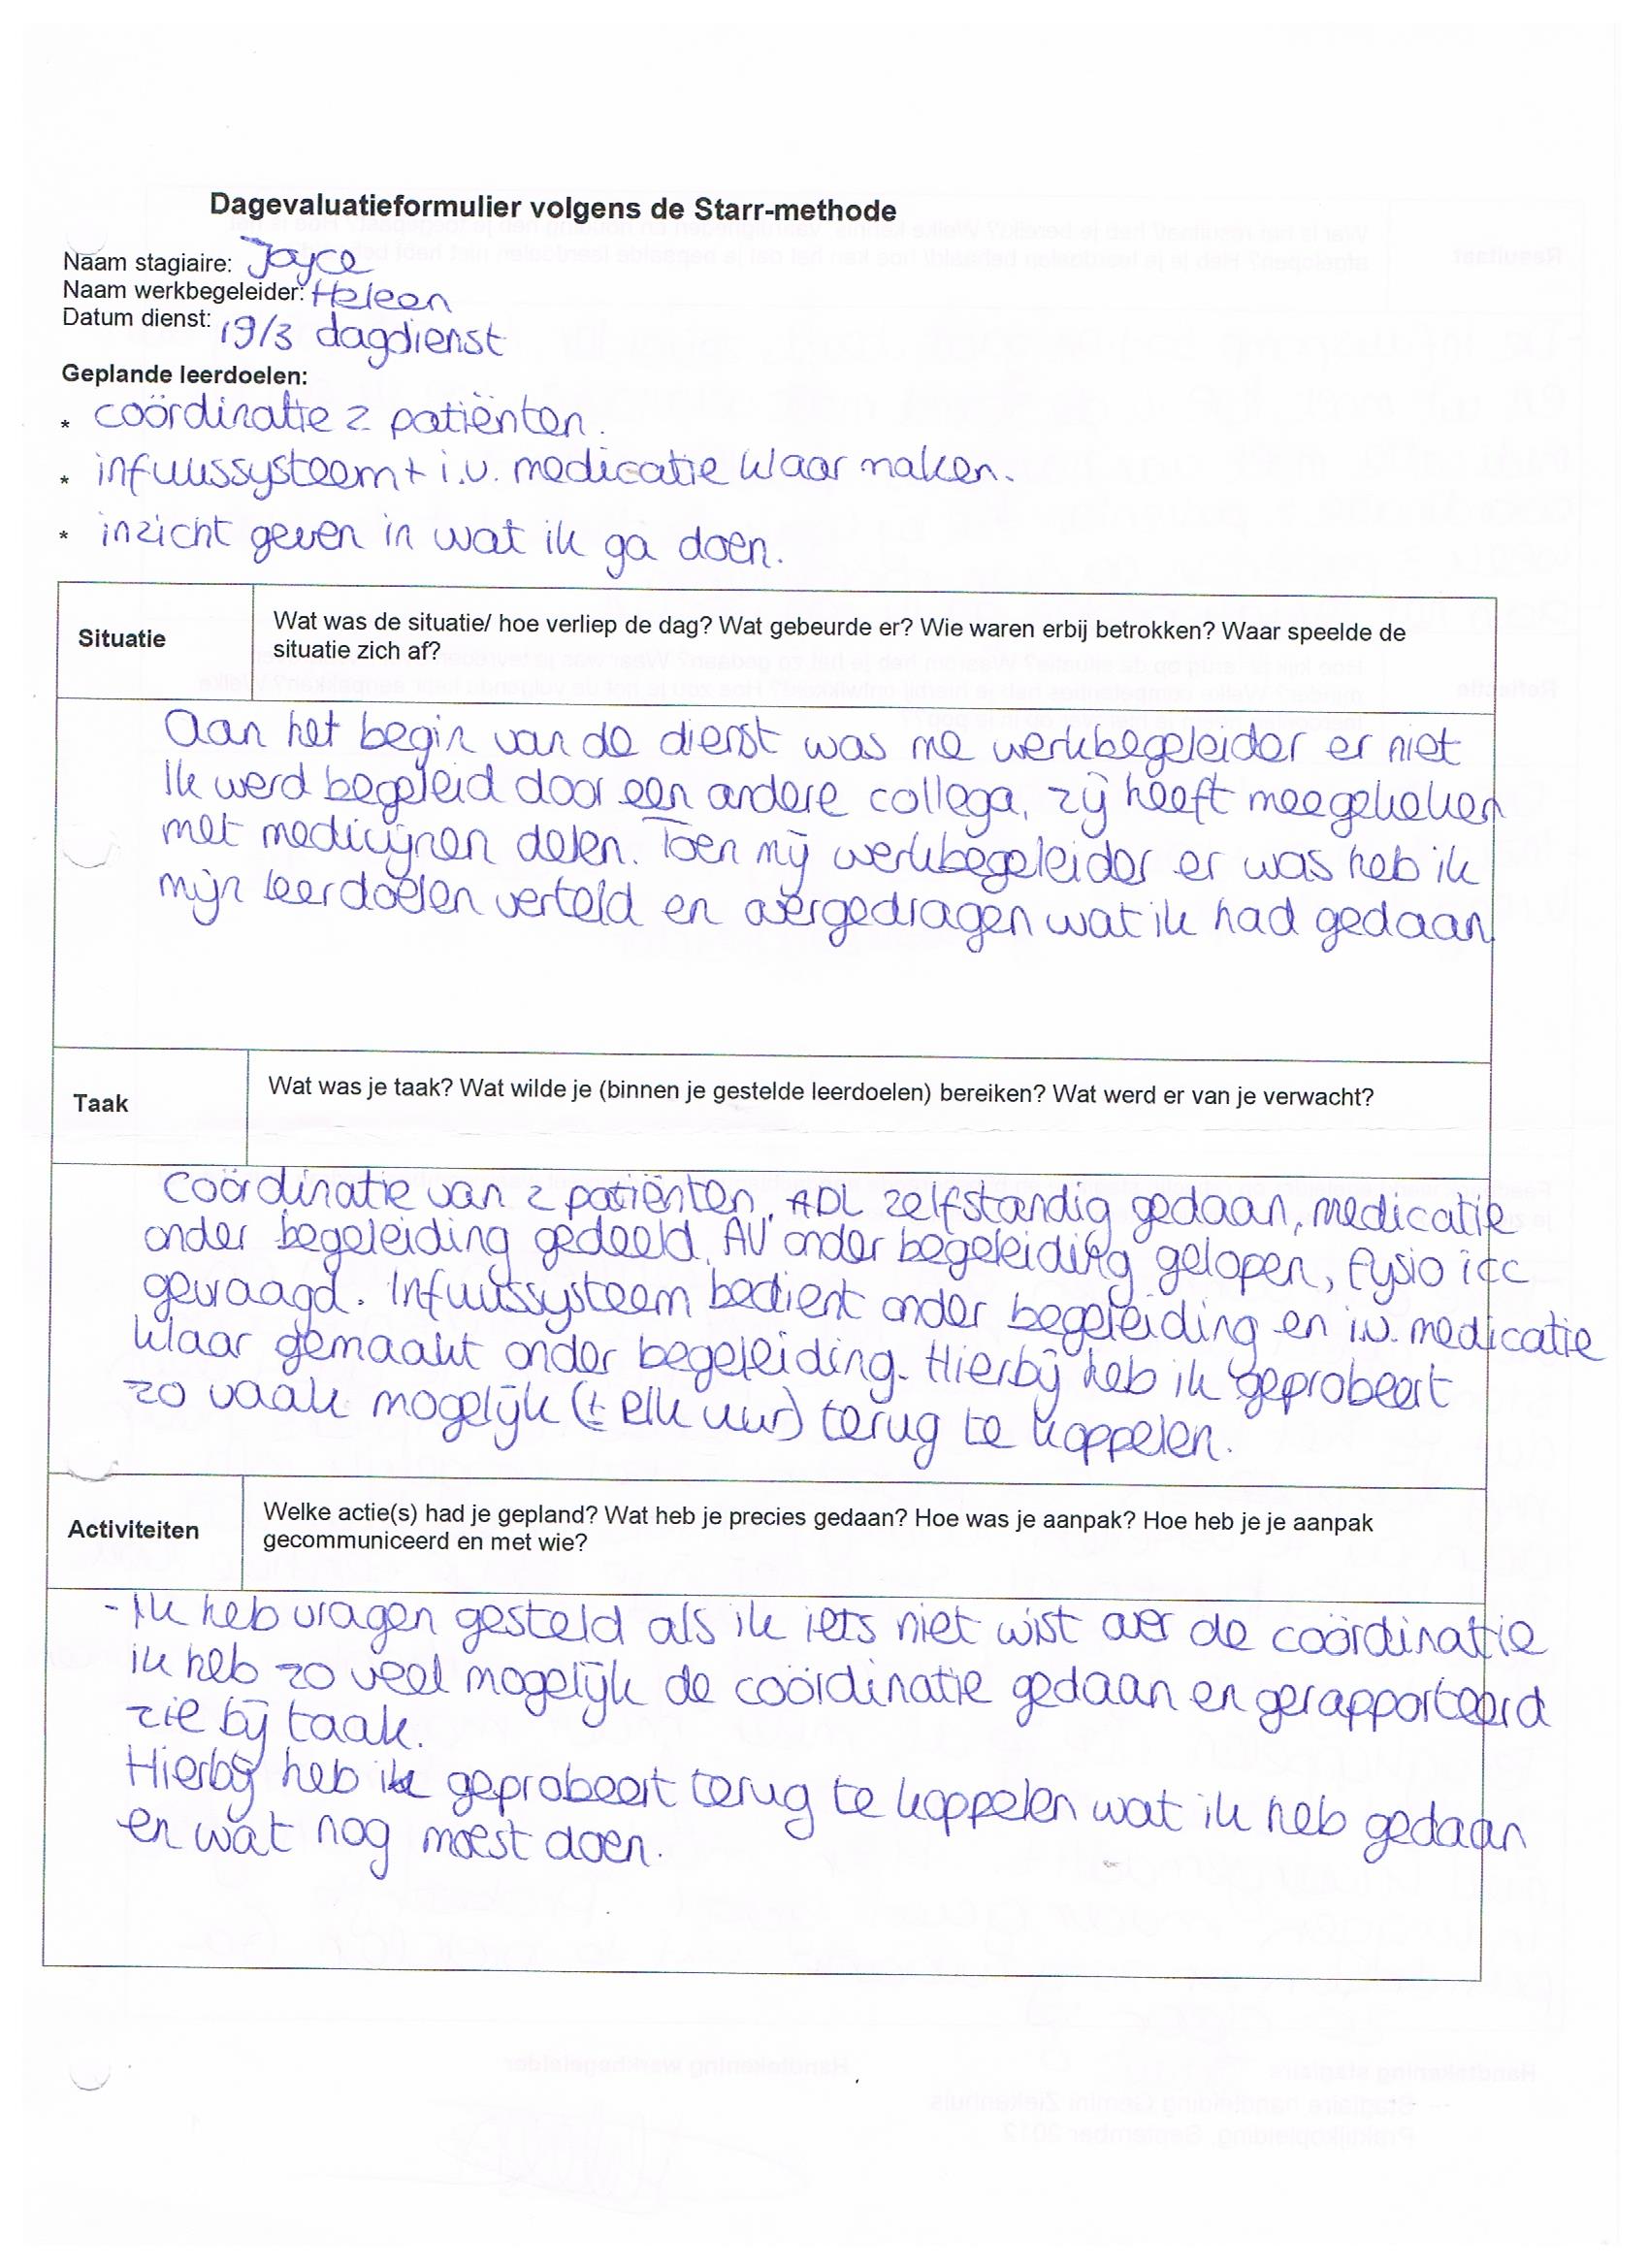 Dagevaluatieformulier volgens de Starr-methode
Naam stagiaire: Joyce
Naam werkbegeleider: Heleen
Datum dienst: 19/3 dagdienst
Geplande leerdoelen:
* coördinatie 2 patiënten.
* infuussysteem + i.v. medicatie klaar maken.
* inzicht geven in wat ik ga doen.
Situatie
Wat was de situatie/ hoe verliep de dag? Wat gebeurde er? Wie waren erbij betrokken? Waar speelde de
situatie zich af?
Aan het begin van de dienst was me werkbegeleider er niet
Ik werd begeleid door een andere collega, zij heeft meegekeken
met medicijnen delen. Toen mij werkbegeleider er was heb ik
mijn leerdoelen verteld en overgedragen wat ik had gedaan
Taak
Wat was je taak? Wat wilde je (binnen je gestelde leerdoelen) bereiken? Wat werd er van je verwacht?
Coördinatie van 2 patiënten, ADL zelfstandig gedaan, medicatie
onder begeleiding gedeeld, AV onder begeleiding gelopen, fysio icc
gevraagd. Infuussysteem bedient onder begeleiding en i.v. medicatie
klaar gemaakt onder begeleiding. Hierbij heb ik geprobeert
zo vaak mogelijk (± elk uur) terug te koppelen.
Activiteiten
Welke actie(s) had je gepland? Wat heb je precies gedaan? Hoe was je aanpak? Hoe heb je je aanpak
gecommuniceerd en met wie?
- Ik heb vragen gesteld als ik iets niet wist over de coördinatie
ik heb zo veel mogelijk de coördinatie gedaan en gerapporteerd
zie bij taak.
Hierbij heb ik geprobeert terug te koppelen wat ik heb gedaan
en wat nog moest doen.